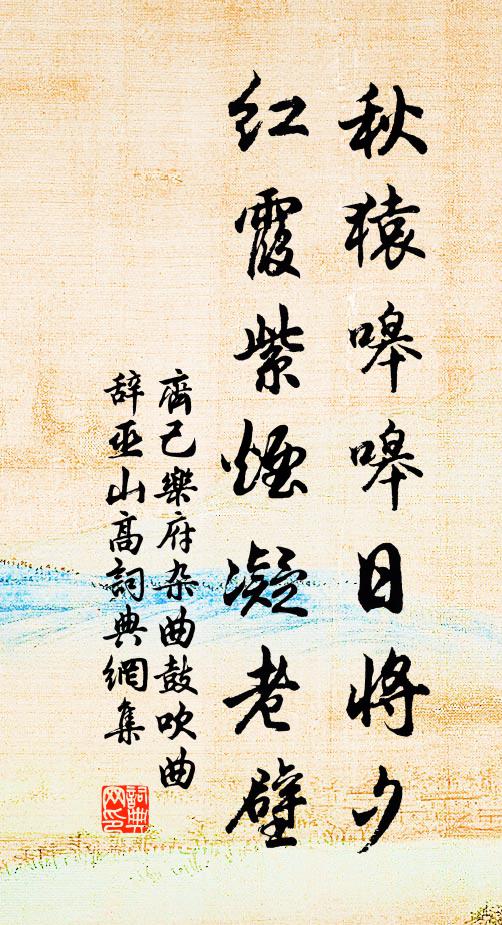 秋猿嗥嗥日將夕
紅霞紫煙凝老壁
齊己樂府杂曲鼓吹曲
辞巫山高詞典網集
詞典
网印